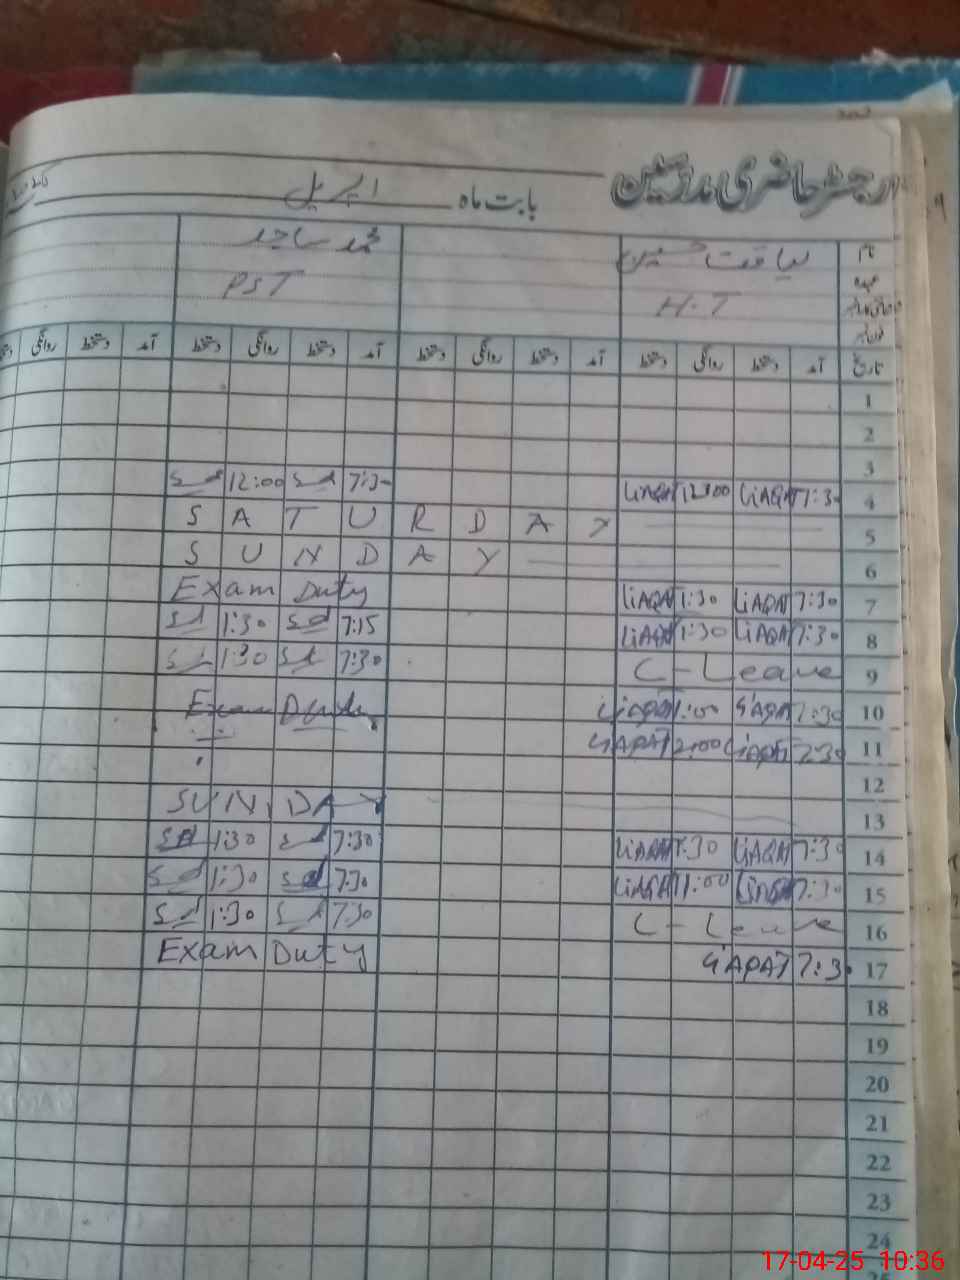 رجسٹر حاضری مدرسین بابت ماه اپریل
نام لیاقت حسین محمد ساجد
عہدہ H.T PST
تاریخ آمد دستخط روانگی دستخط آمد دستخط روانگی دستخط آمد دستخط روانگی دستخط آمد دستخط روانگی
1
2
3
4 7:30 LIAQAT 12:00 LIAQAT 7:30 12:00
5 SATURDAY
6 SUNDAY
7 7:30 LIAQAT 1:30 LIAQAT Exam Duty
8 7:30 LIAQAT 1:30 LIAQAT 7:15 1:30
9 C-Leave 7:30 1:30
10 7:30 LIAQAT 1:00 LIAQAT Exam Duty
11 7:30 LIAQAT 12:00 LIAQAT
12
13 SUNDAY
14 7:30 LIAQAT 1:30 LIAQAT 7:30 1:30
15 7:30 LIAQAT 1:00 LIAQAT 7:30 1:30
16 C-Leave 7:30 1:30
17 7:30 LIAQAT Exam Duty
18
19
20
21
22
23
24
17-04-25 10:36